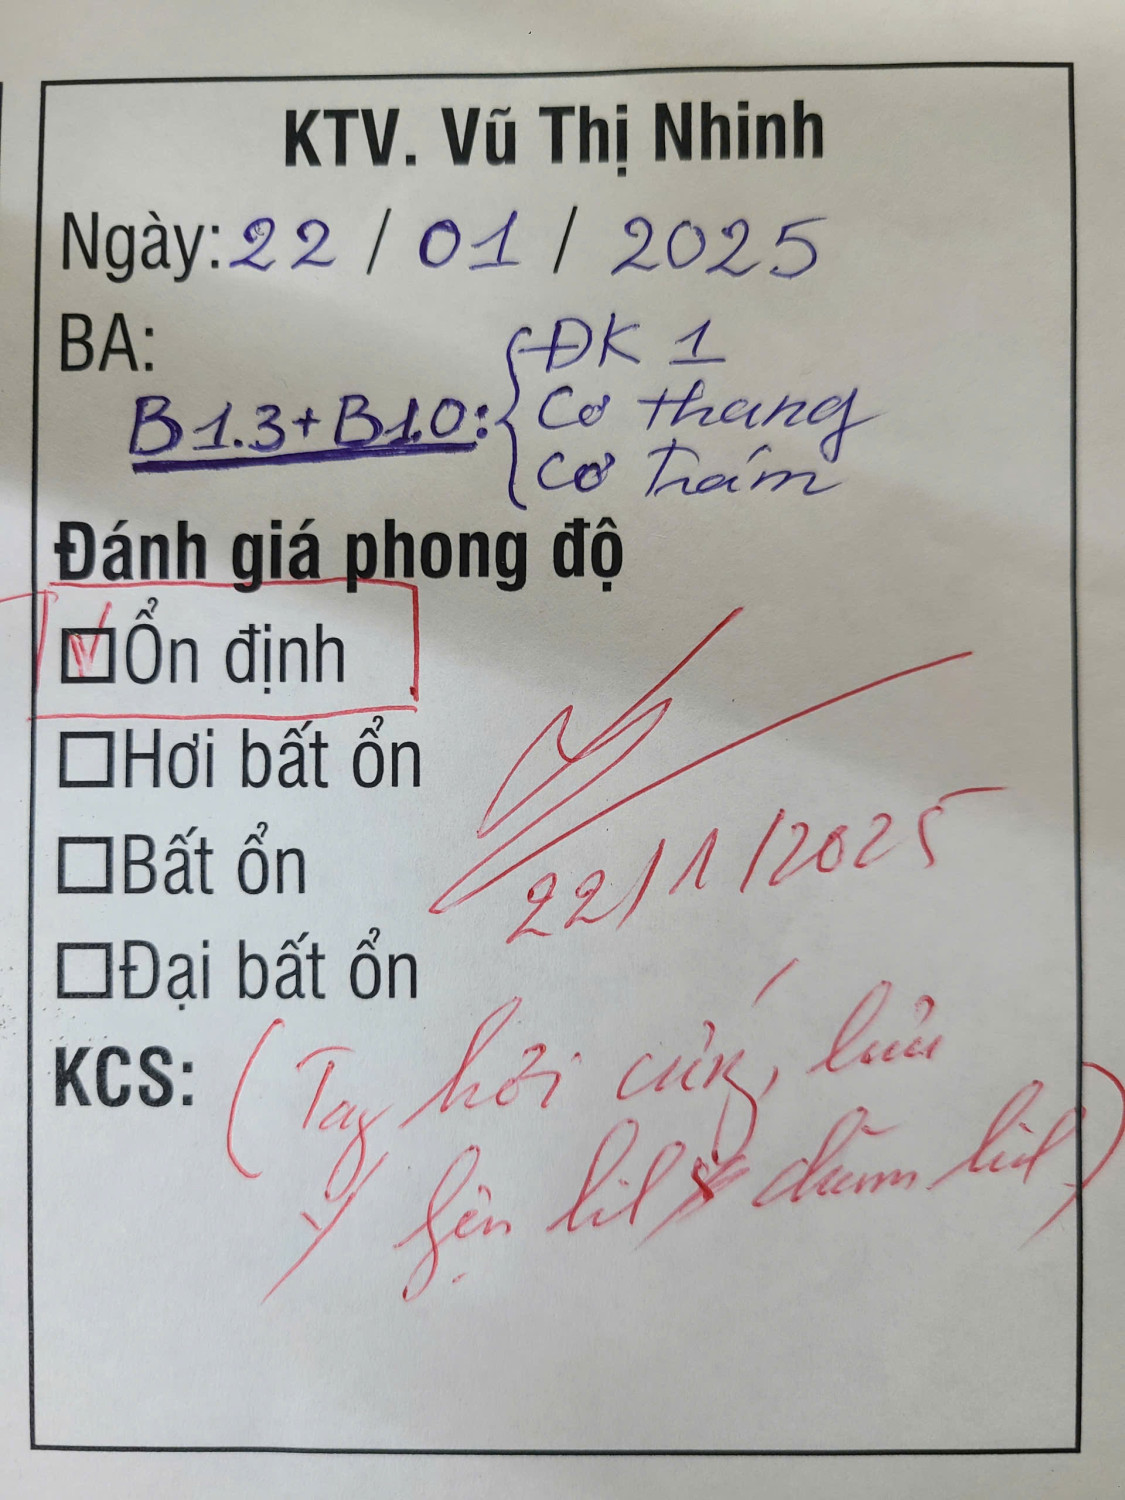 KTV. Vũ Thị Nhinh
Ngày: 22 / 01 / 2025
BA:
B1.3+B1.0: { ĐK 1
Cơ thang
Cơ trám
Đánh giá phong độ
☑Ổn định
☐Hơi bất ổn
☐Bất ổn
☐Đại bất ổn
22/1/2025
KCS: (Tay hơi cứng, lưu
ý dùm)